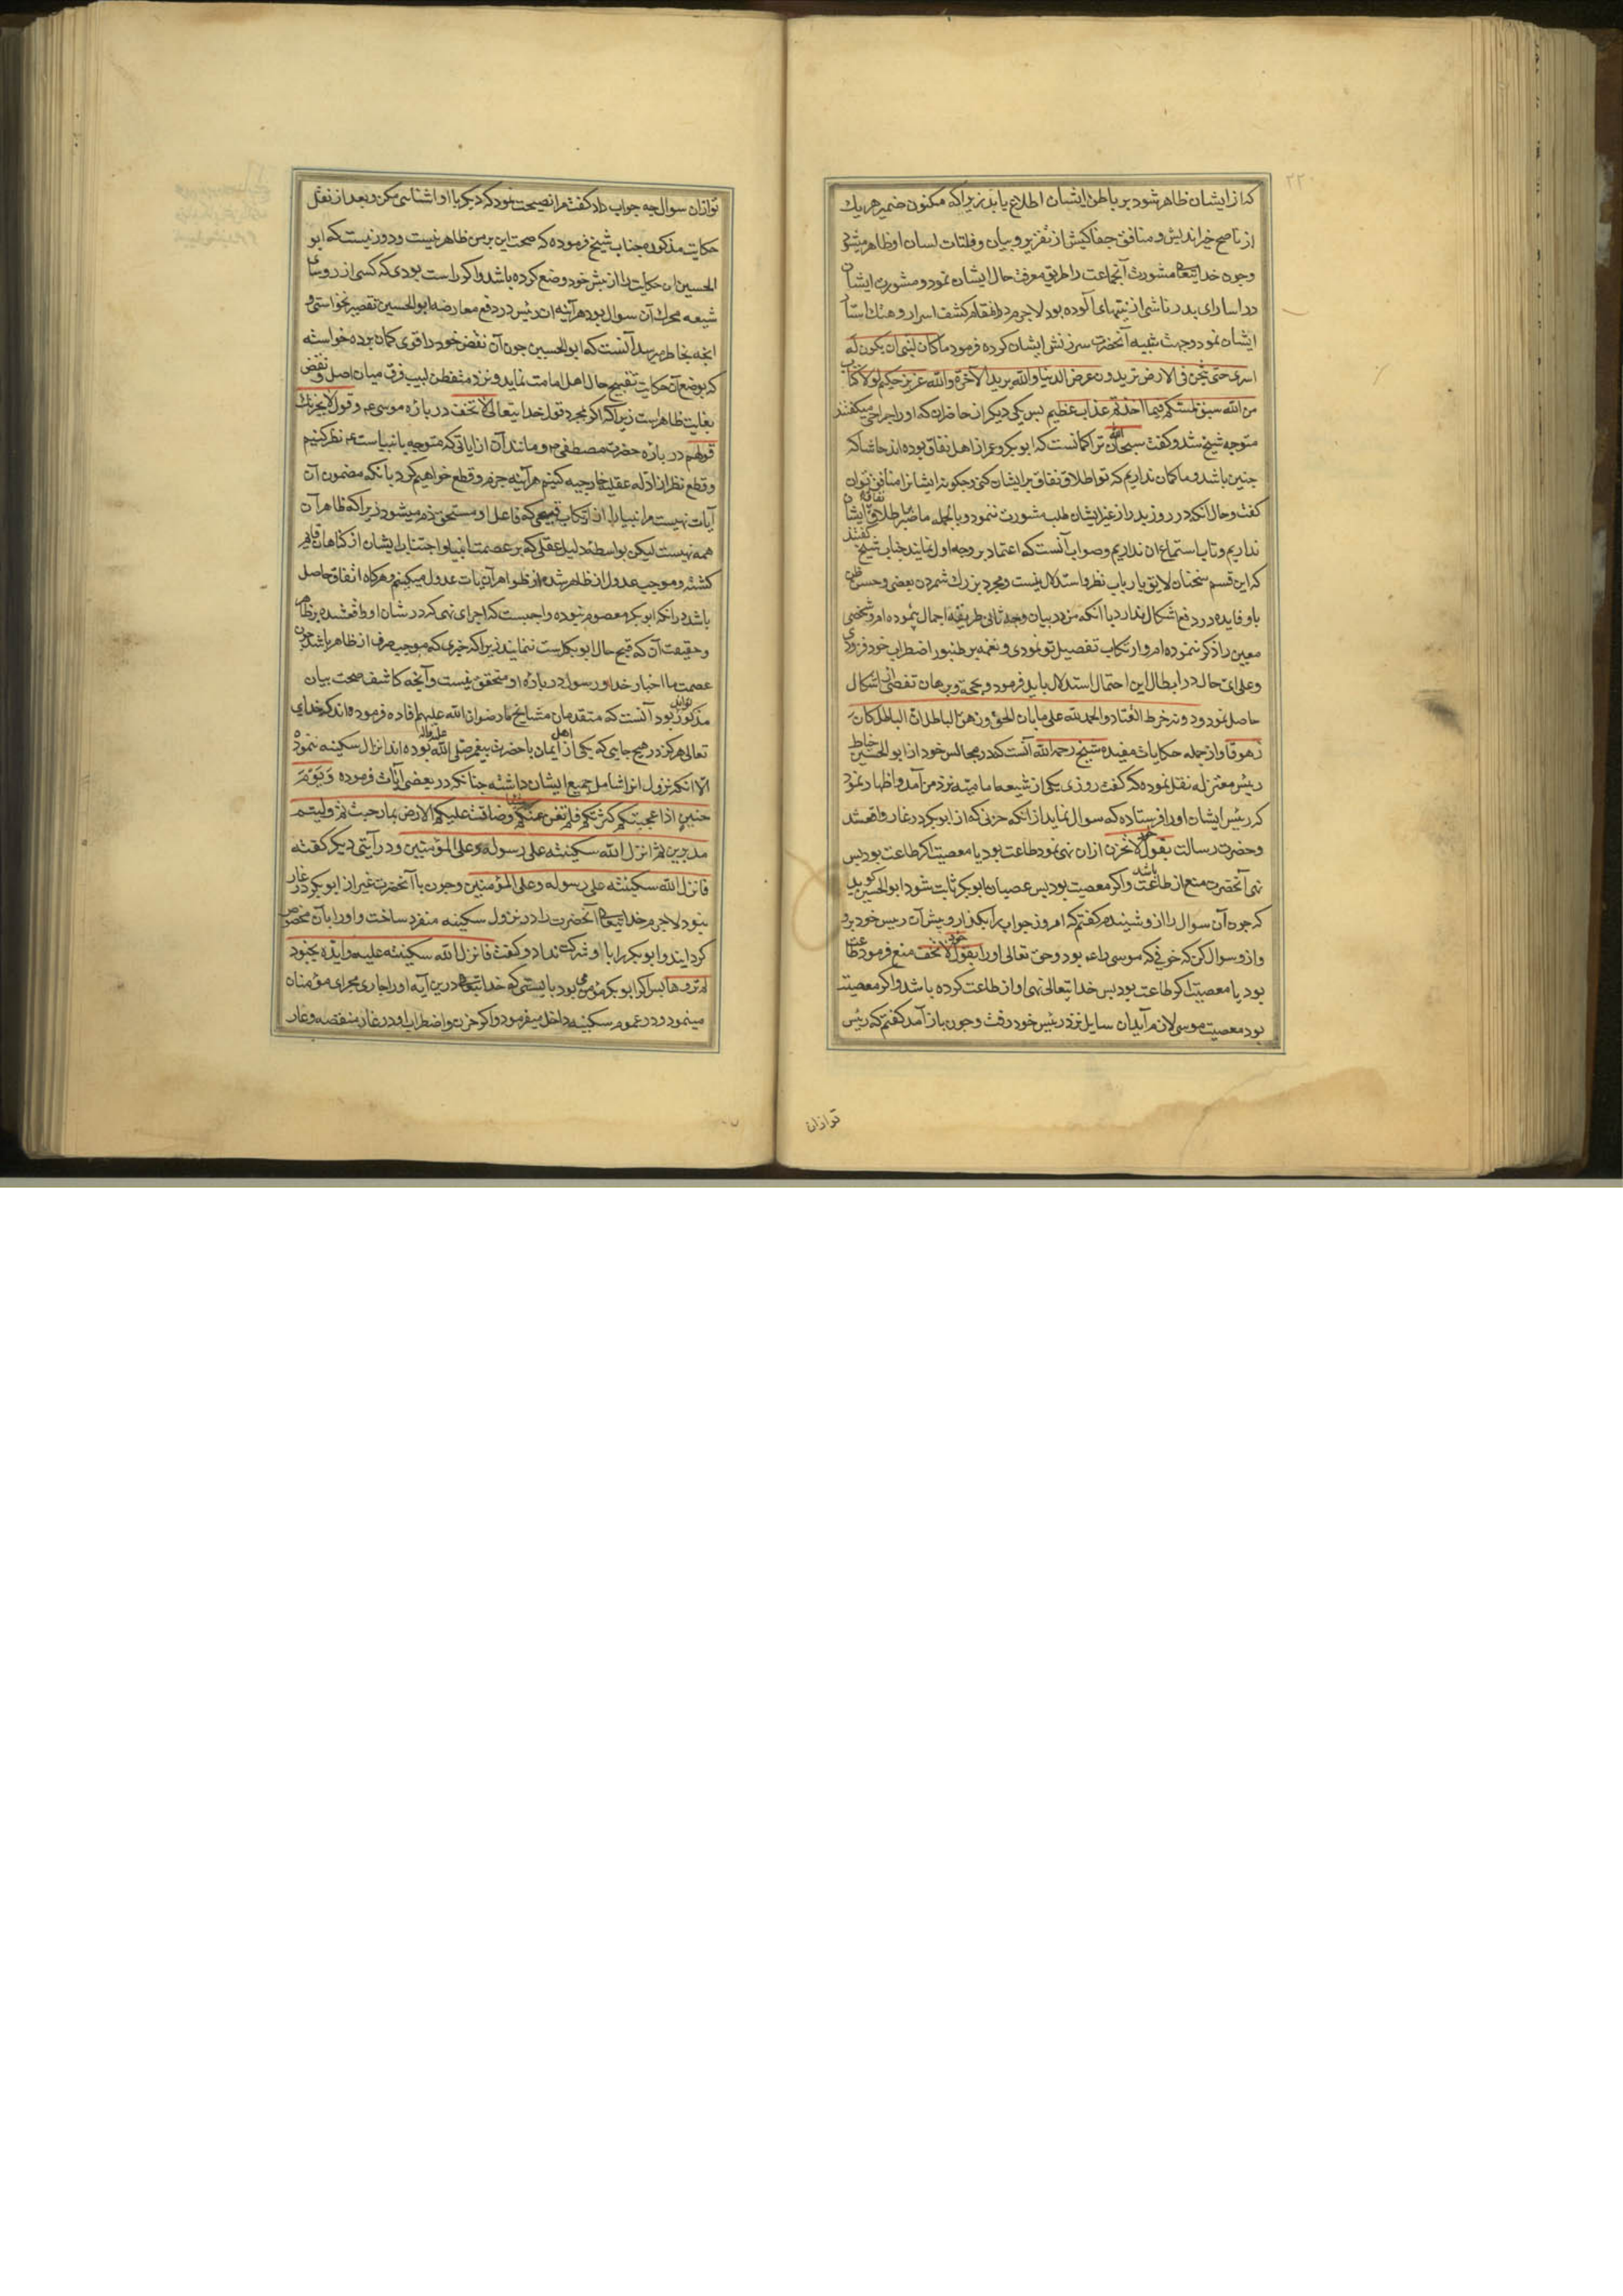 ۲۲۰
که از ایشان ظاهر شود بر باطن ایشان اطلاع یابد زیرا که مکنون ضمیر هر یک
از ناصح خیراندیش و منافق جفاکیش از تقریر و بیان و فلتات لسان او ظاهر میشود
و چون خدایتعالی مشورت آنجماعت را طریق معرفت حال ایشان نمود و مشورت ایشان
در اسارای بدر ناشی از نیتهای آلوده بود لاجرم در آنمقام کشف اسرار و هتک استار
ایشان نمود و جهت تنبیه آنحضرت سرزنش ایشان کرده فرمود ما کان لنبی ان یکون له
اسری حتی یثخن فی الارض تریدون عرض الدنیا والله یرید الآخرة والله عزیز حکیم لولا کتاب
من الله سبق لمسکم فیما اخذتم عذاب عظیم پس یکی دیگر از حاضران که او را جراحی میگفتند
متوجه شیخ شد و گفت سبحان الله ترا گمانست که ابوبکر و عمر از اهل نفاق بوده اند حاشا که
چنین باشد و ما گمان نداریم که تو اطلاق نفاق بر ایشان کنی و چگونه ایشانرا منافق توان
گفت و حال آنکه در روز بدر از غیر ایشان طلب مشورت ننمود و بالجمله ما صبر اطلاق نفاق بر ایشان
نداریم و تاب استماع ان نداریم و صواب آنست که اعتماد بر وجه اول نمایند جناب شیخ گفتند
که این قسم سخنان لایق ارباب نظر و استدلال نیست و مجرد بزرگ شمردن بعضی و حسن ظن
باو فایده در دفع اشکال ندارد با آنکه من در بیان وجه ثانی طریقه اجمال پیموده ام و شخصی
معین را ذکر ننموده ام و ارتکاب تفصیل تو نمودی و نغمه بر طنبور اضطراب خود فزودی
و علی ای حال در ابطال این احتمال استدلال باید فرمود و بحجة و برهان تفصی از ان اشکال
حاصل نمود و دونه خرط القتاد والحمد لله علی ما بان الحق و زهق الباطل ان الباطل کان
زهوقا و از جمله حکایات مفیده شیخ رحمه الله آنست که در مجالس خود از ابو الحسین خیاط
رئیس معتزله نقل نموده که گفت روزی یکی از شیعه امامیه نزد من آمد و اظهار نمود
که رئیس ایشان او را فرستاده که سوال نماید از آنکه حزنی که از ابوبکر در غار واقع شد
و حضرت رسالت بقول لا تحزن از ان نهی نمود طاعت بود یا معصیت اگر طاعت بود پس
نهی آنحضرت منع از طاعت باشد و اگر معصیت بود پس عصیان ابوبکر ثابت شود ابو الحسین گوید
که چون آن سوال را از و شنیدم گفتم که امروز جواب را بگذار و پیش آن رئیس خود برو
و از و سوال کن که خوفی که موسی را ع بود و حق تعالی او را بقول خود لا تخف منع فرمود طاعت
بود یا معصیت اگر طاعت بود پس خدایتعالی نهی او از طاعت کرده باشد و اگر معصیت
بود معصیت موسی لازم آید ان سایل نزد رئیس خود رفت و چون باز آمد گفتم که رئیس
تو از ان
تو از ان سوال چه جواب داد گفت مرا نصیحت نمود که دیگر با او اشنایی مکن و بعد از نقل
حکایت مذکوره جناب شیخ فرموده که صحت این بر من ظاهر نیست و دور نیست که ابو
الحسین ان حکایت را از پیش خود وضع کرده باشد و اگر راست بودی که کسی از روسای
شیعه محرک آن سوال بود هر آئینه ان رئیس در دفع معارضه ابو الحسین تقصیر نخواستی و
انچه بخاطر میرسد آنست که ابو الحسین چون آن نقض خود را قوی گمان برده خواسته
که بوضع آن حکایت تقبیح حال اهل امامت نماید و نزد متفطن لبیب فرق میان اصل و نقض
بغایت ظاهر است زیرا که اگر بمجرد قول خدایتعالی لا تخف در باره موسی ع و قول لا یحزنک
قولهم در باره حضرت مصطفی ص و مانند آن از آیاتی که متوجه بانبیاست ع نظر کنیم
و قطع نظر از ادله عقلیه خارجیه کنیم هر آینه جزم و قطع خواهیم کرد بانکه مضمون آن
آیات نهیست مر انبیا را از ارتکاب قبیحی که فاعل او مستحق ذم میشود زیرا که ظاهر آن
همه نهیست لیکن بواسطه دلیل عقلی که بر عصمت انبیا و اجتناب ایشان از گناهان قایم
گشته و موجب عدول از ظاهر شده از ظواهر آن آیات عدول میکنیم و هرگاه اتفاق حاصل
باشد در آنکه ابوبکر معصوم نبوده واجبست که اجرای نهی که در شان او واقع شده بر ظاهر
و حقیقت آن که قبح حال ابوبکر است نمایند زیرا که چیزی که موجب صرف از ظاهر باشد چون
عصمت ما اخبار خدا و رسول در باره او متحقق نیست و آنچه کاشف صحت بیان
مذکور تواند بود آنست که متقدمان مشایخ ما رضوان الله علیهم افاده فرموده اند که خدای
تعالی هرگز در هیچ جایی که یکی از اهل ایمان با حضرت پیغمبر صلی الله علیه واله بوده اند انزال سکینه ننموده
الا آنکه نزول انرا شامل جمیع ایشان داشته چنانکه در بعضی آیات فرموده وَیَوْمَ
حنین اذ اعجبتکم کثرتکم فلم تغن عنکم شیئا وضاقت علیکم الارض بما رحبت ثم ولیتم
مدبرین ثم انزل الله سکینته علی رسوله وعلی المؤمنین و در آیتی دیگر گفته
فانزل الله سکینته علی رسوله وعلی المؤمنین و چون با آنحضرت غیر از ابوبکر در غار
نبود لاجرم خدایتعالی آنحضرت را در نزول سکینه منفرد ساخت و او را بآن مخصوص
گردانید و ابوبکر را با او شرکت نداد و گفت فانزل الله سکینته علیه وایده بجنود
لم تروها پس اگر ابوبکر مؤمن می بود بایستی که خدایتعالی درین آیه او را جاری مجرای مؤمنان
مینمود و در عموم سکینه داخل میفرمود و اگر حزن و اضطراب او در غار منقصه و عار